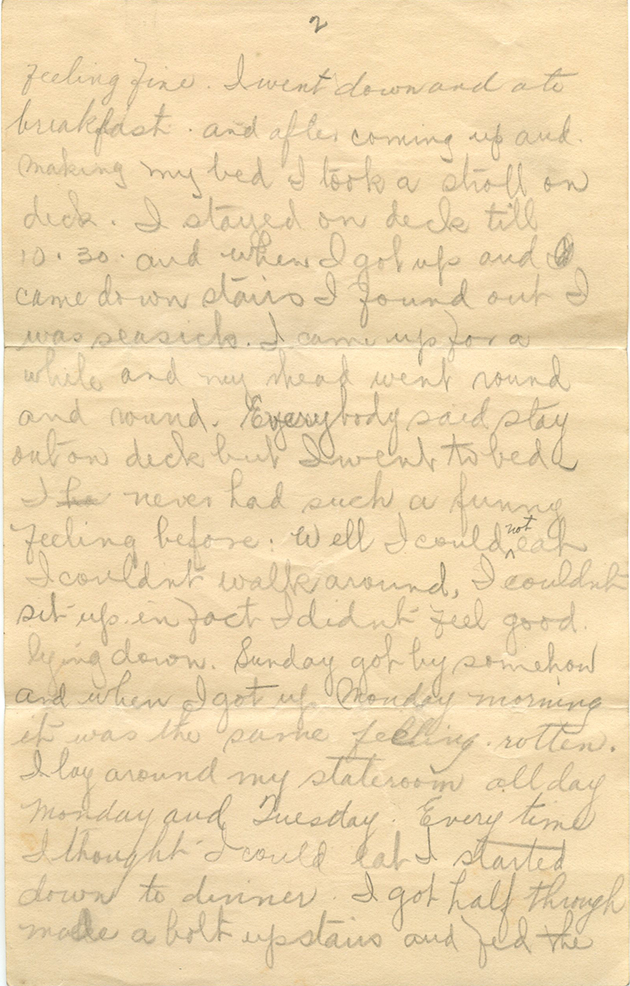 2
feeling fine. I went down and ate
breakfast. and after coming up and
making my bed I took a stroll on
deck. I stayed on deck till
10.30. and when I got up and
came down stairs I found out I
was seasick. I came up for a
while and my head went round
and round. Everybody said stay
out on deck but I went to bed
I ha never had such a funny
feeling before. Well I could not eat
I couldnt walk around, I couldnt
sit up. in fact I didnt feel good
lying down. Sunday got by somehow
and when I got up Monday morning
it was the same feeling. rotten.
I lay around my stateroom all day
Monday and Tuesday. Every time
I thought I could eat I started
down to dinner. I got half through
made a bolt upstairs and fed the